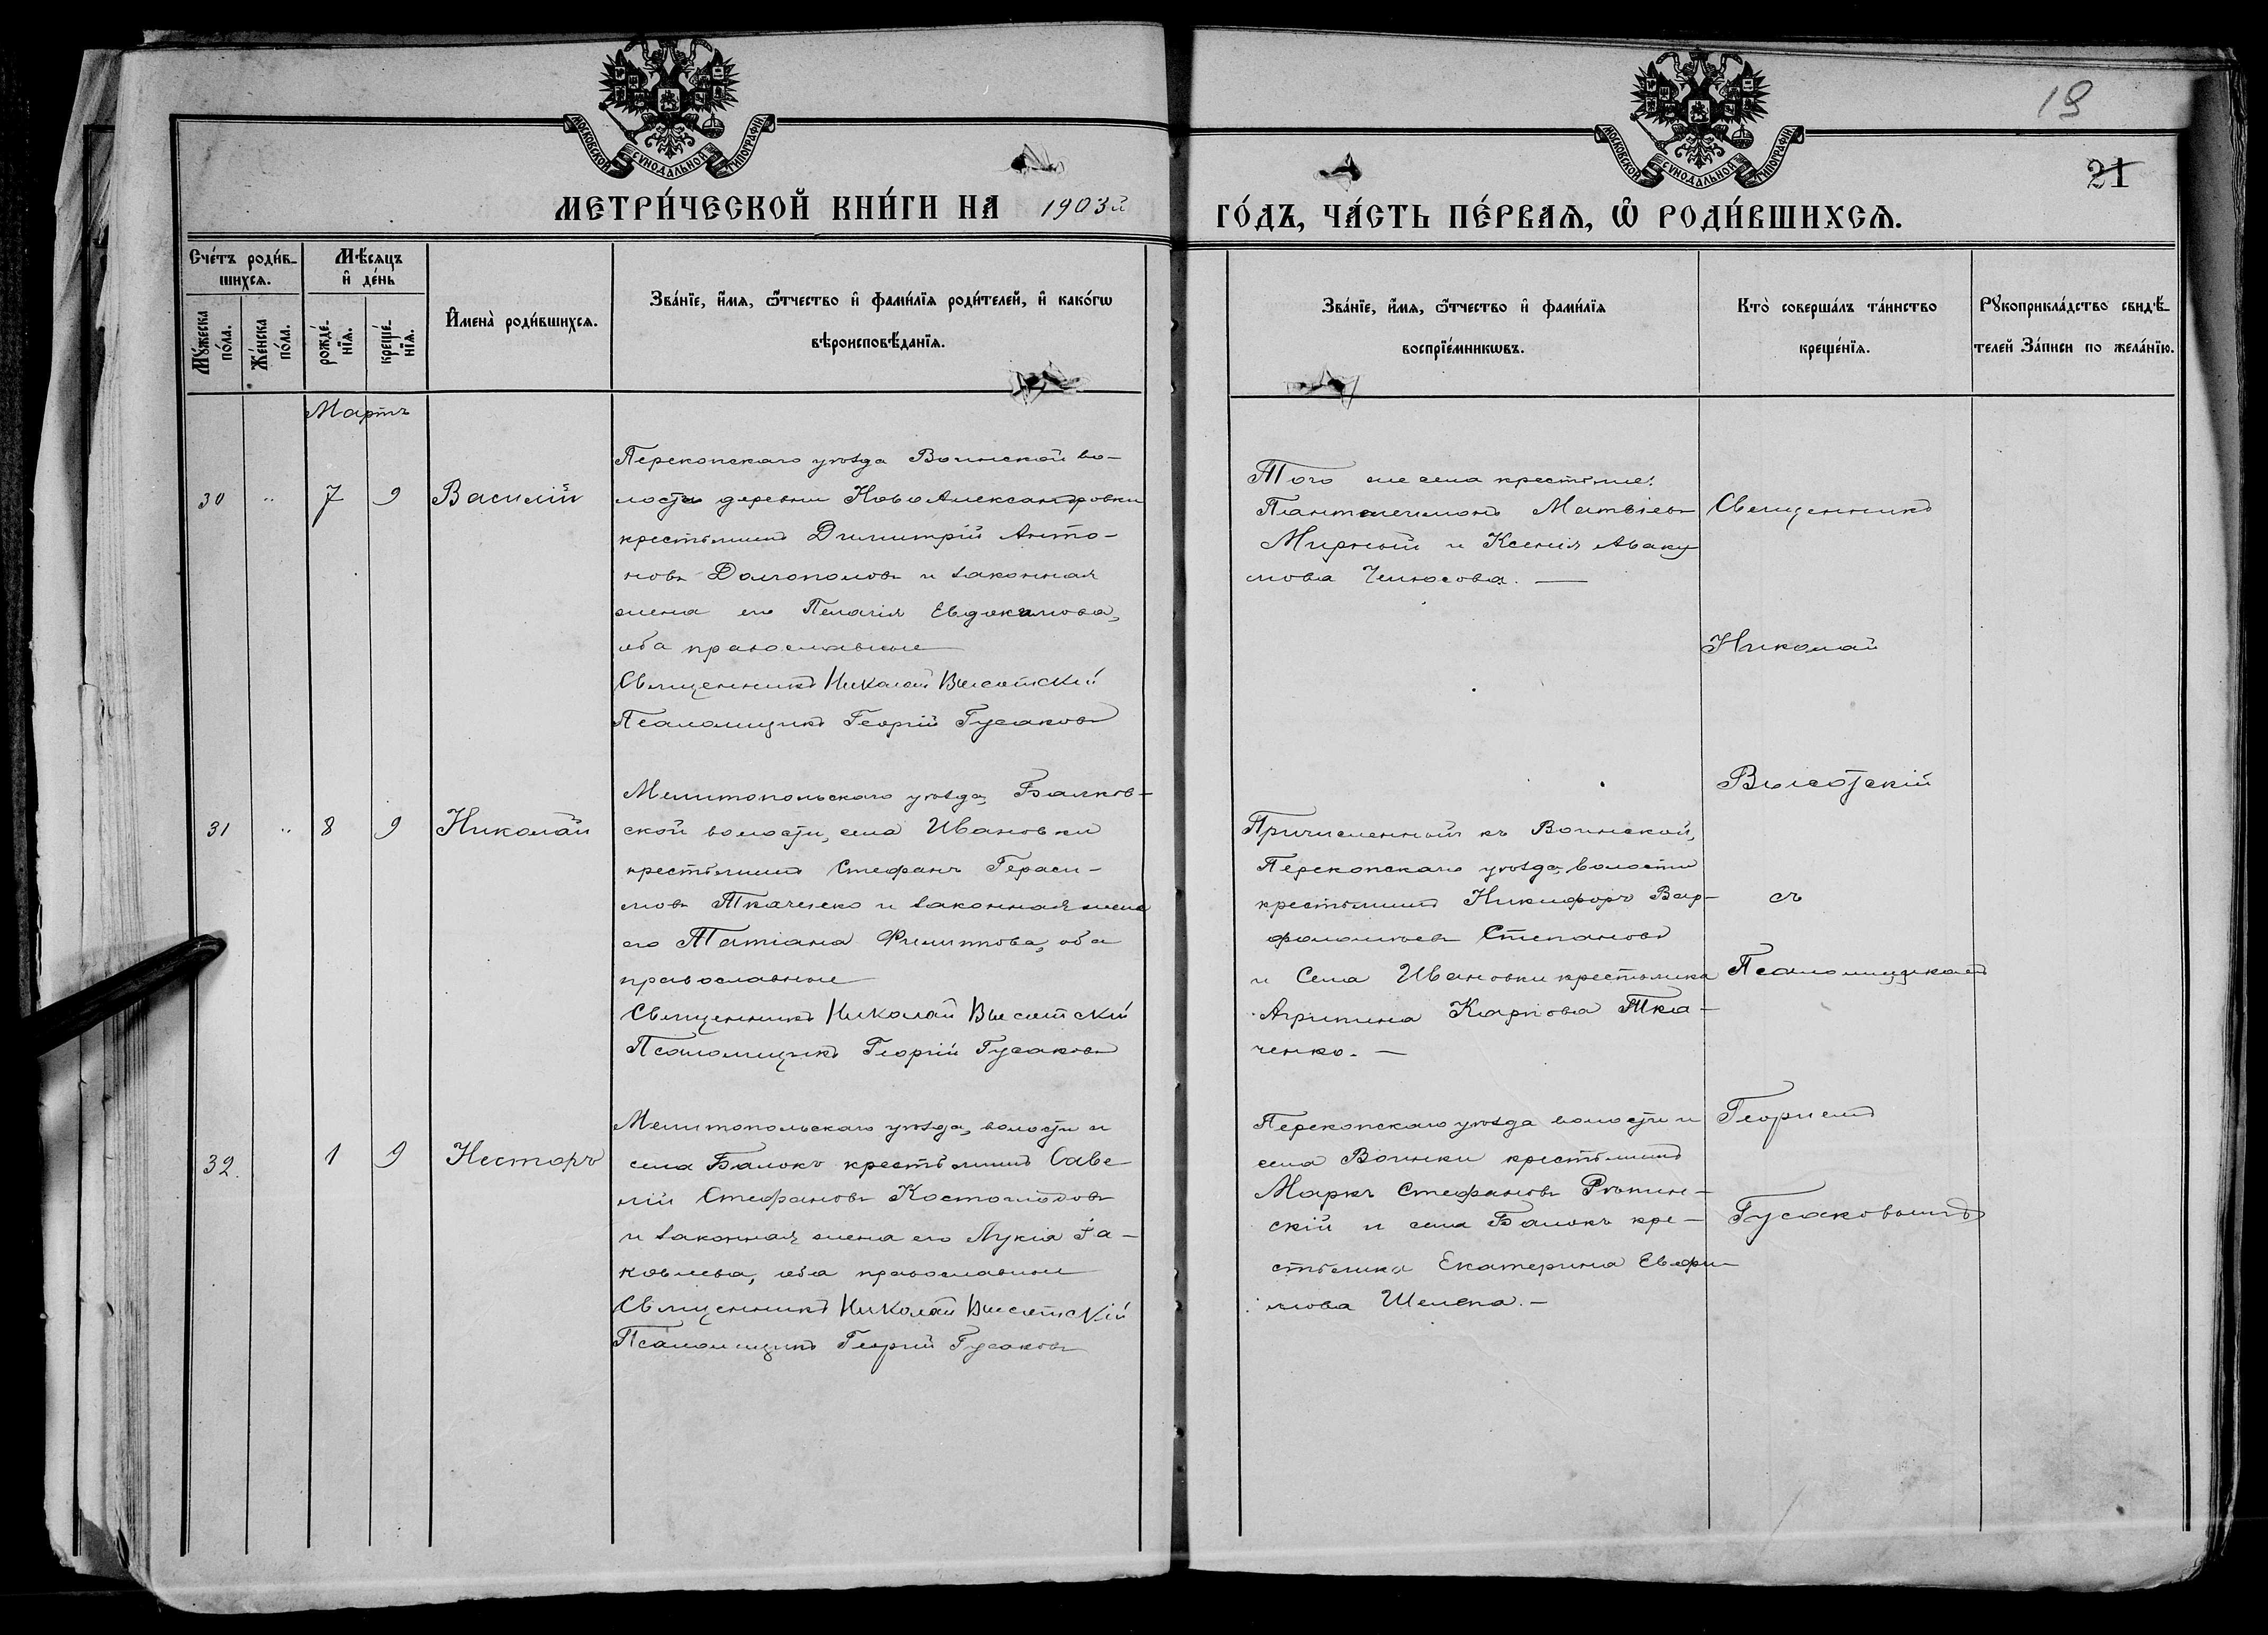 19
21
МОСКОВСКОЙ СѴНОДАЛЬНОЙ ТИПОГРАФІИ
МОСКОВСКОЙ СѴНОДАЛЬНОЙ ТИПОГРАФІИ
МЕТРИ́ЧЕСКОЙ КНИ́ГИ НА 1903й
ГО́ДЪ, ЧА́СТЬ ПЕ́РВАѦ, Ѽ РОДИ́ВШИХСѦ.
Сче́тъ роди́в-
шихсѧ.
Мꙋ́жеска по́ла.
Же́нска по́ла.
Мѣ́сѧцъ
и҆ де́нь
рожде́-
нїѧ.
креще́-
нїѧ.
И҆мена̀ роди́вшихсѧ.
Зва́нїе, и҆́мѧ, ѻ҆́тчество и҆ фами́лїѧ роди́телей, и҆ како́гѡ
вѣроисповѣ́данїѧ.
Зва́нїе, и҆́мѧ, ѻ҆́тчество и҆ фами́лїѧ
воспрїе́мникѡвъ.
Кто̀ соверша́лъ та́инство
креще́нїѧ.
Рꙋкоприкла́дство свидѣ́-
телей За́писи по жела́нїю.
Мартъ
30 „ 7 9 Василій
Перекопскаго уѣзда Воинской во-
лости деревни НовоАлександровки
крестьянинъ Димитрій Анто-
новъ Долгополовъ и законная
жена его Пелагія Евдокимова,
оба православные
Священникъ Николай Высотскій
Псаломщикъ Георгій Гусаковъ
Того же села крестьяне:
Пантелеимонъ Матвіевъ
Мирный и Ксенія Аваку
мова Челюсова. —
Священникъ
Николай
Высотскій
съ
Псаломщикомъ
Георгіемъ
Гусаковымъ
31 „ 8 9 Николай
Мелитопольскаго уѣзда, Балков-
ской волости, села Ивановки
крестьянинъ Стефанъ Гераси-
мовъ Ткаченко и законная жена
его Татіана Филиппова, оба
православные
Священникъ Николай Высотскій
Псаломщикъ Георгій Гусаковъ
Причисленный къ Воинской,
Перекопскаго уѣзда, волости
крестьянинъ Никифоръ Вар-
фоломѣевъ Степановъ
и Села Ивановки крестьянка
Агрипина Карпова Тка-
ченко. —
32. 1 9 Несторъ
Мелитопольскаго уѣзда, волости и
села Балокъ крестьянинъ Саве
лій Стефановъ Костоглодовъ
и законная жена его Лукія Іа-
ковлева, оба православные
Священникъ Николай Высотскій
Псаломщикъ Георгій Гусаковъ
Перекопскаго уѣзда волости и
села Воинки крестьянинъ
Маркъ Стефановъ Рѣпин-
скій и села Балокъ кре-
стьянка Екатерина Евфи
мова Шелепа. —